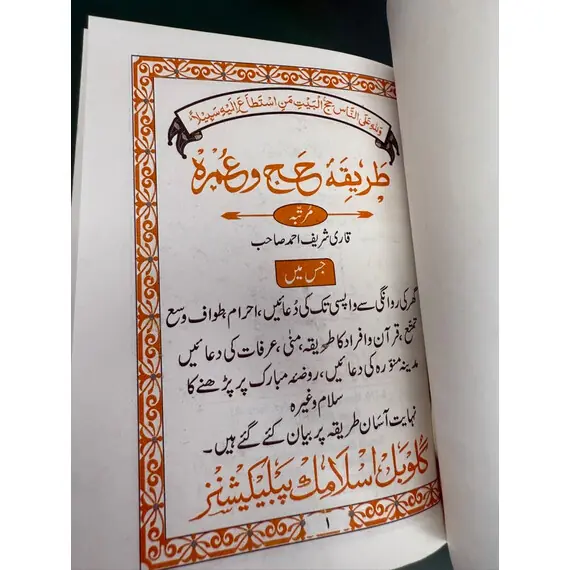 وَلِلّٰهِ عَلَى النَّاسِ حِجُّ الْبَيْتِ مَنِ اسْتَطَاعَ اِلَيْهِ سَبِيْلًا
طَرِیقۂ حَج و عُمرہ
مرتبہ
قاری شریف احمد صاحب
جس میں
گھر کی روانگی سے واپسی تک کی دُعائیں، احرام طواف وسع
تمتع، قرآن و افراد کا طریقہ، منٰی، عرفات کی دعائیں
مدینہ منورہ کی دعائیں، روضہ مبارک پر پڑھنے کا
سلام وغیرہ
نہایت آسان طریقہ پر بیان کئے گئے ہیں۔
گلوبل اسلامک پبلیکیشنز
۱